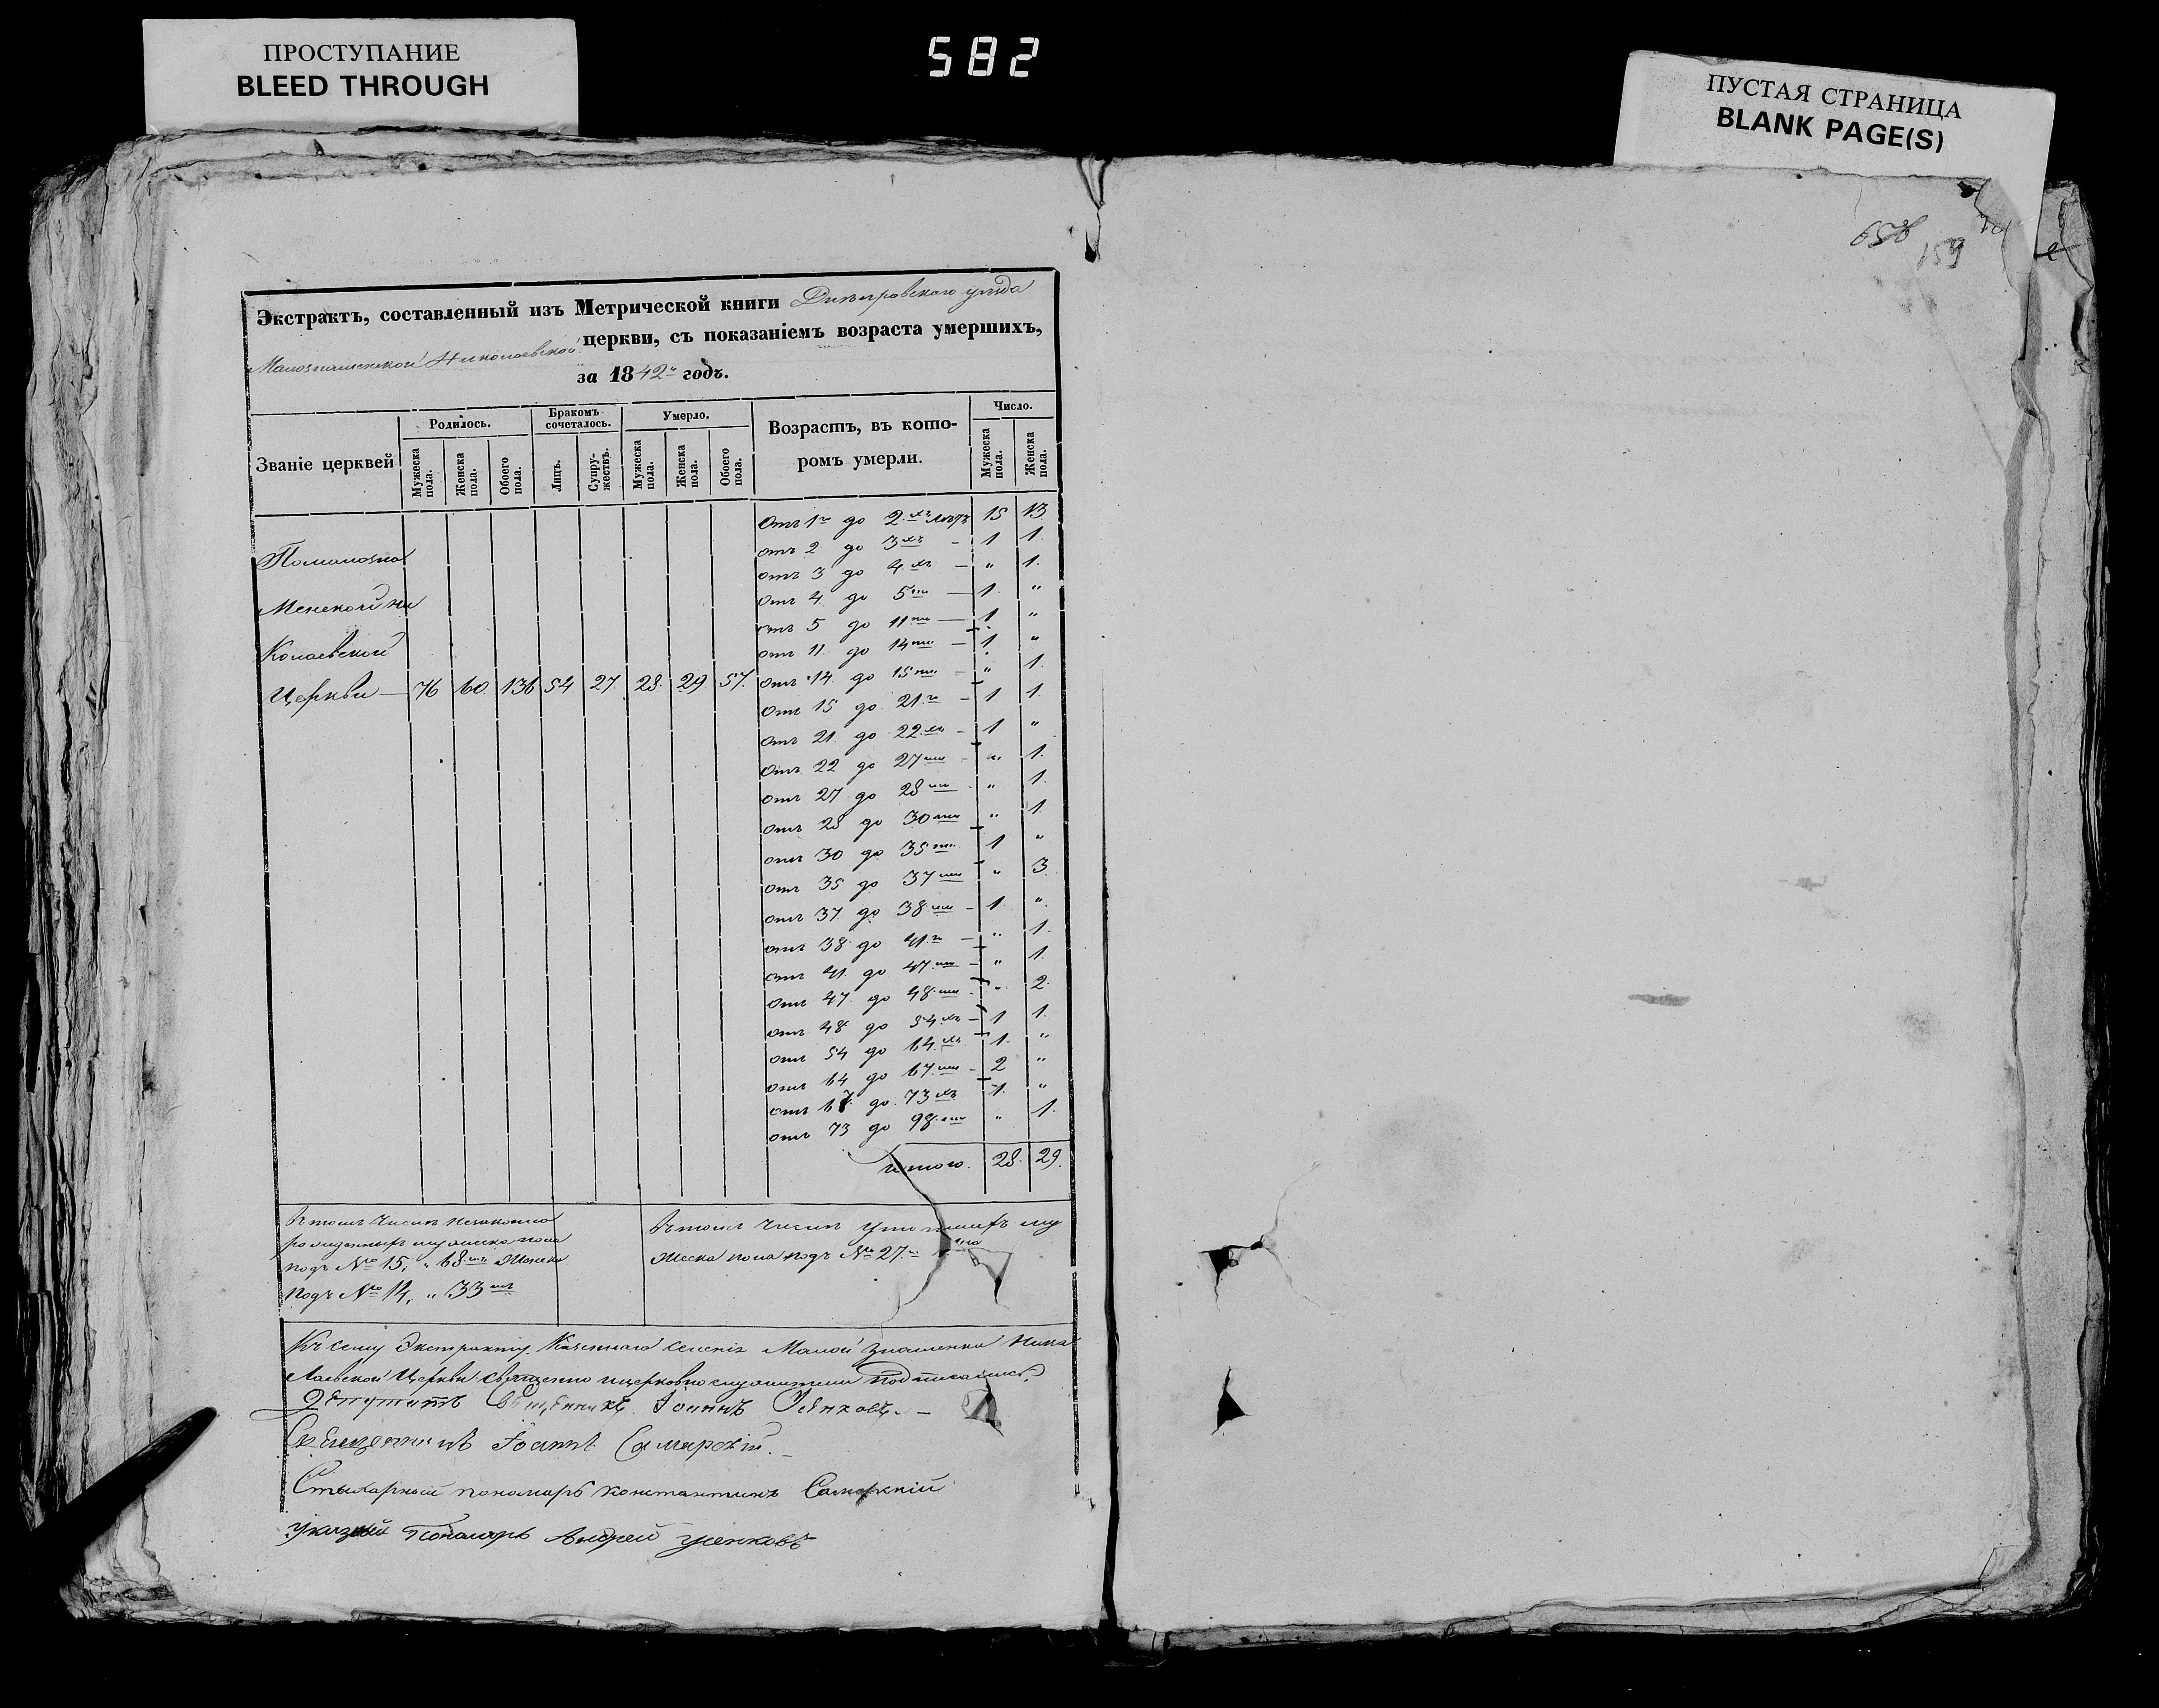 ПРОСТУПАНИЕ
BLEED THROUGH
582
ПУСТАЯ СТРАНИЦА
BLANK PAGE(S)
159
Экстрактъ, составленный изъ Метрической книги Днепровского уезда
Малознаменской Николаевской церкви, съ показаніемъ возраста умершихъ,
за 1842й годъ.
Званіе церквей
Родилось.
Бракомъ сочеталось.
Умерло.
Возрастъ, въ которомъ умерли.
Число.
Мужеска пола.
Женска пола.
Обоего пола.
Лицъ.
Супружествъ.
Мужеска пола.
Женска пола.
Обоего пола.
Мужеска пола.
Женска пола.
Помалозна
Менской Ни
Колаевской
Церкви — 76 60 136 54 27 28 29 57
Отъ 1го до 2хъ летъ 15 13
отъ 2 до 3хъ — 1 1
отъ 3 до 4хъ — " 1
отъ 4 до 5ти — 1 "
отъ 5 до 11ти — 1 "
отъ 11 до 14ти — 1 "
отъ 14 до 15ти — " 1
отъ 15 до 21го — 1 1
отъ 21 до 22хъ — 1 "
отъ 22 до 27ми — " 1
отъ 27 до 28ми — " 1
отъ 28 до 30ти " 1
отъ 30 до 35ти 1 "
отъ 35 до 37ми " 3
отъ 37 до 38ми — 1 "
отъ 38 до 41го — " 1
отъ 41 до 47ми — " 1
отъ 47 до 48ми — " 2
отъ 48 до 54хъ — 1 1
отъ 54 до 64хъ 1 "
отъ 64 до 67ми — 2 "
отъ 67 до 73хъ 1 "
отъ 73 до 98ми " 1
Итого. 28 29
Втомъ Числе незаконно
рожденныхъ мужеска пола
подъ № 15, " 68мъ Женска
подъ № 14, " 33мъ
Втомъ Числе му
жеска пола подъ № 27
Къ сему Экстракту Казенного Селенія Малой Знаменки Нико
лаевской Церкви священно ицерковно служители подписались
Депутатъ Священникъ Іоаннъ Усенковъ. —
Священникъ Іоаннъ Самарскій. —
Стихарный пономарь Константинъ Самарскій
Указный Пономарь Андрей Усенковъ